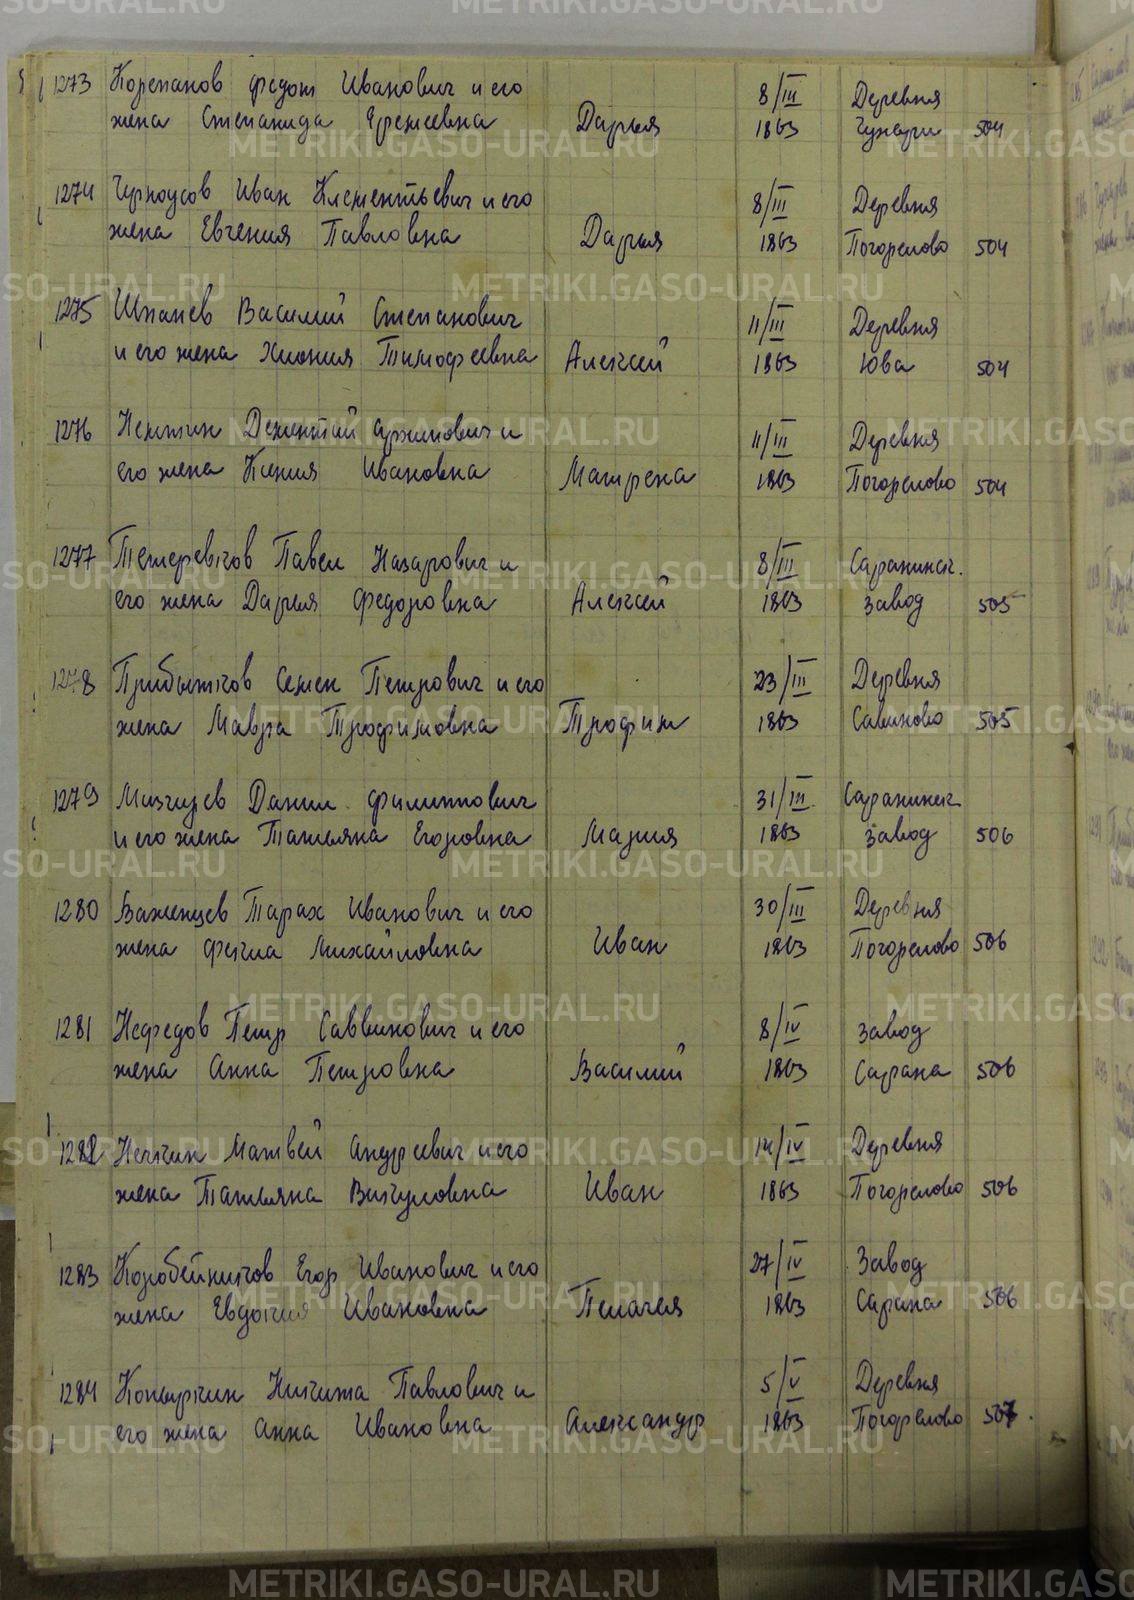 1273 Корепанов Федот Иванович и его 8/III Деревня
жена Степанида Еремеевна Дарья 1863 504
1274 Черноусов Иван Клементьевич и его 8/III Деревня
жена Евгения Павловна Дарья 1863 Погорелово 504
1275 Шпанев Василий Степанович 11/III Деревня
и его жена Хиония Тимофеевна Алексей 1863 Юва 504
1276 Дементий и 11/III Деревня
его жена Ксения Ивановна Матрена 1863 Погорелово 504
1277 Павел Назарович и 8/III Саранинск.
его жена Дарья Федоровна Алексей 1863 завод 505
1278 Прибытков Семен Петрович и его 23/III Деревня
жена Мавра Трофимовна Трофим 1863 Савиново 505
1279 Мизгирев Данил Филиппович 31/III Саранинск
и его жена Татьяна Егоровна Мария 1863 завод 506
1280 Важенцев Тарах Иванович и его 30/III Деревня
жена Фекла Михайловна Иван 1863 Погорелово 506
1281 Нефедов Петр Саввинович и его 8/IV завод
жена Анна Петровна Василий 1863 Сарана 506
1282 Матвей Андреевич и его 14/IV Деревня
жена Татьяна Викуловна Иван 1863 Погорелово 506
1283 Коробейников Егор Иванович и его 27/IV Завод
жена Евдокия Ивановна Пелагея 1863 Сарана 506
1284 Никита Павлович и 5/V Деревня
его жена Анна Ивановна Александр 1863 Погорелово 507.
METRIKI.GASO-URAL.RU